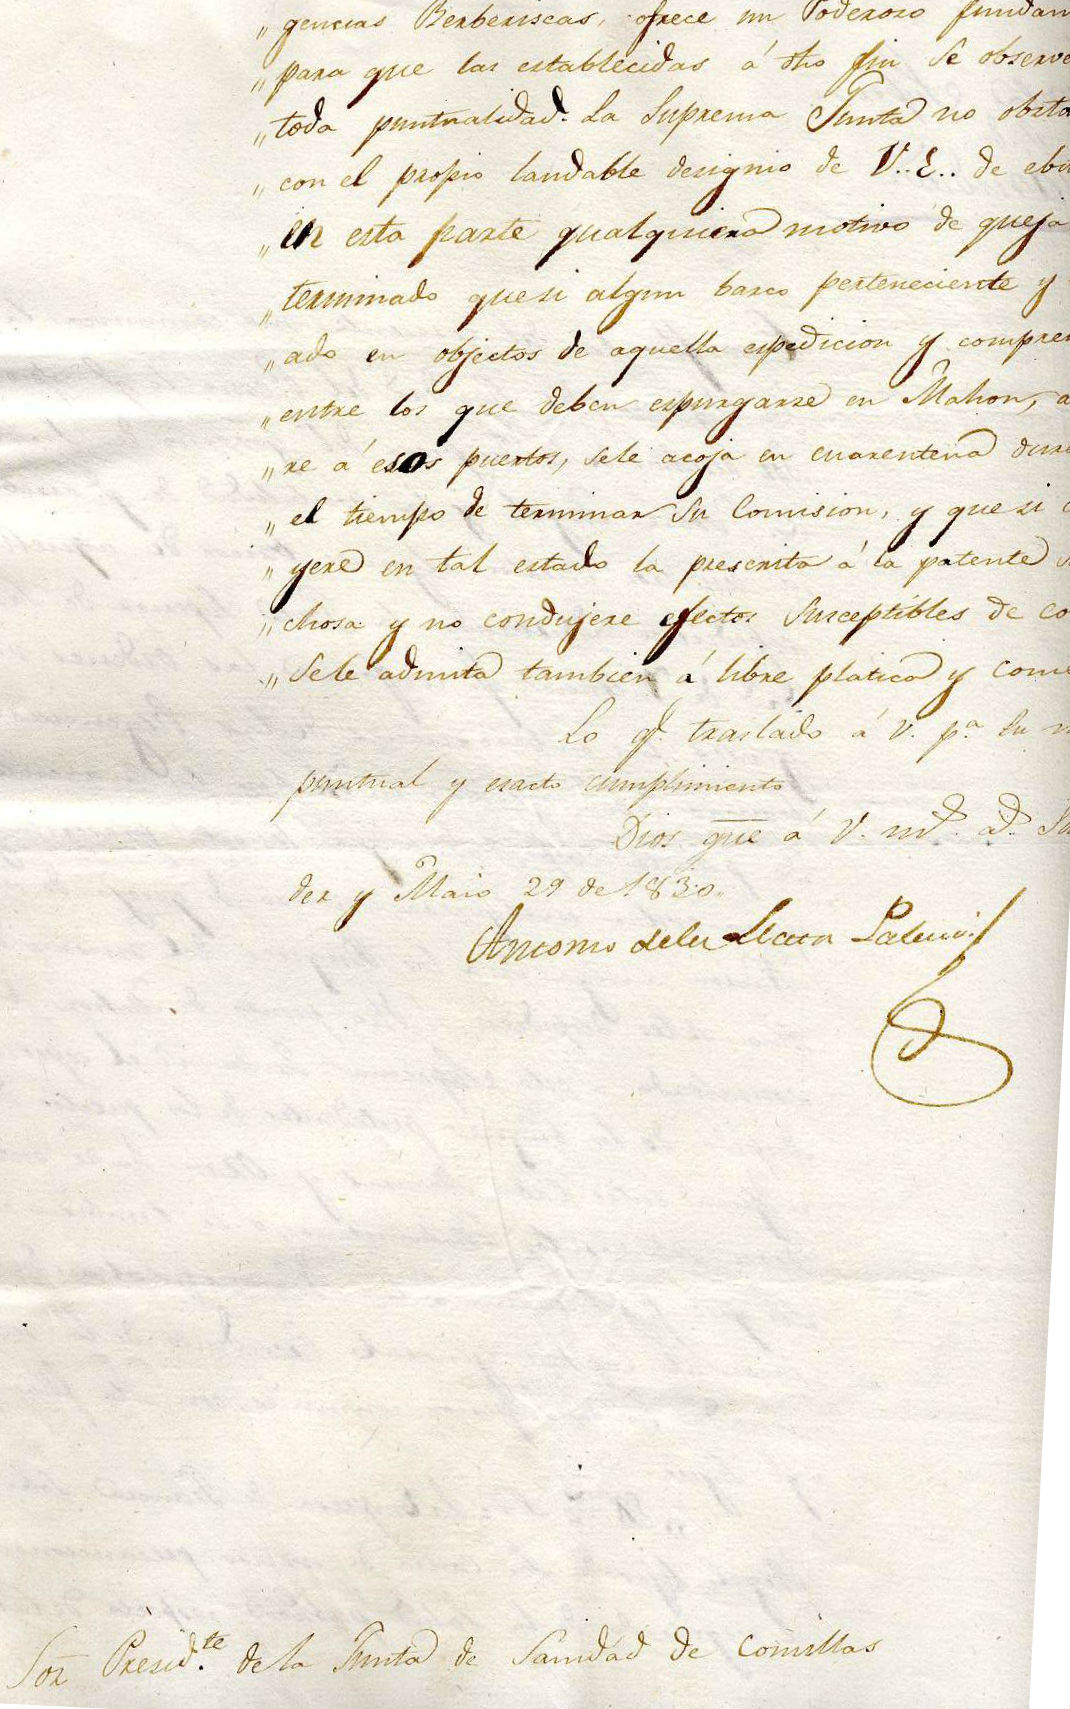 „ gencias Berberiscas, ofrece un Poderoso fundam
„ para que las establecidas á dho fin se observe
„ toda puntualidad. La Suprema Junta no obsta
„ con el propio laudable designio de V..E.. de
„ en esta parte qualquiera motivo de queja
„ terminado que si algun barco perteneciente y
„ ado en objectos de aquella espedicion y compren
„ entre los que deben espurgarse en Mahon, a
„ re á esos puertos, sele acoja en cuarentena dura
„ el tiempo de terminar su Comision, y que si
„ yere en tal estado la prescrita á la patente s
„ chosa y no condujere efectos susceptibles de co
„ sele admita tambien á libre platica y come
Lo q.e traslado á V. p.a su
puntual y exacto cumplimiento
Dios gue á V. m.s a.s San
der y Maio 29 de 1830.
Antonio dela Llata Palacio
Sor Presid.te de la Junta de Sanidad de Comillas